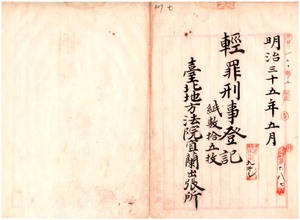 明治三十五年五月
輕罪刑事登記
紙數拾五枚
臺北地方法院宜蘭出張所